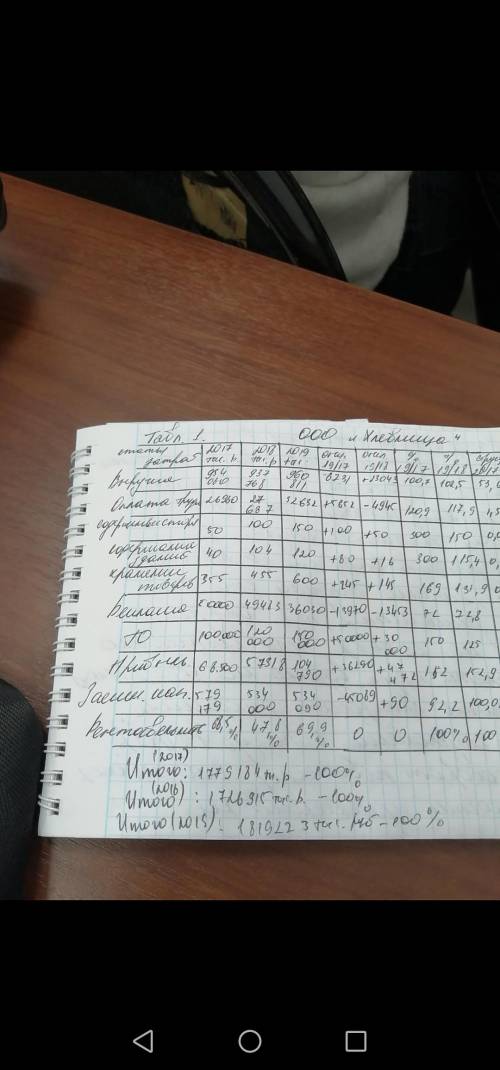 Табл. 1. ООО "Хлебница"
статьи затрат 2017 тыс.р. 2018 тыс.р 2019 тыс. откл. 19/17 откл 19/18 % 19/17 % 19/18
Выручка 954 937 768 960 811 100,7 102,5
Оплата 26980 27 687 32632 +5652 -4945 120,9 117,9
50 100 150 +100 +50 300 150
содержание зданий 40 104 120 +80 +16 300 115,4
хранение товаров 355 455 600 +245 +145 169 131,9
Реклама 50000 49483 36030 -13970 -13453 72 72,8
ТО 100 000 120 000 150 000 +50000 +30 000 150 125
Прибыль 68500 57318 104 790 +36290 +47 472 152 152,9
579 179 534 000 534 090 -45089 +90 92,2 100,0
Рентабельность 68,5% 47,8% 69,9% 0 0 100% 100
(2017)
Итого: 1779184 т.р - 100%
(2018)
Итого: 1726915 тыс.р. - 100%
Итого (2019): 1819223 тыс. руб - 100%